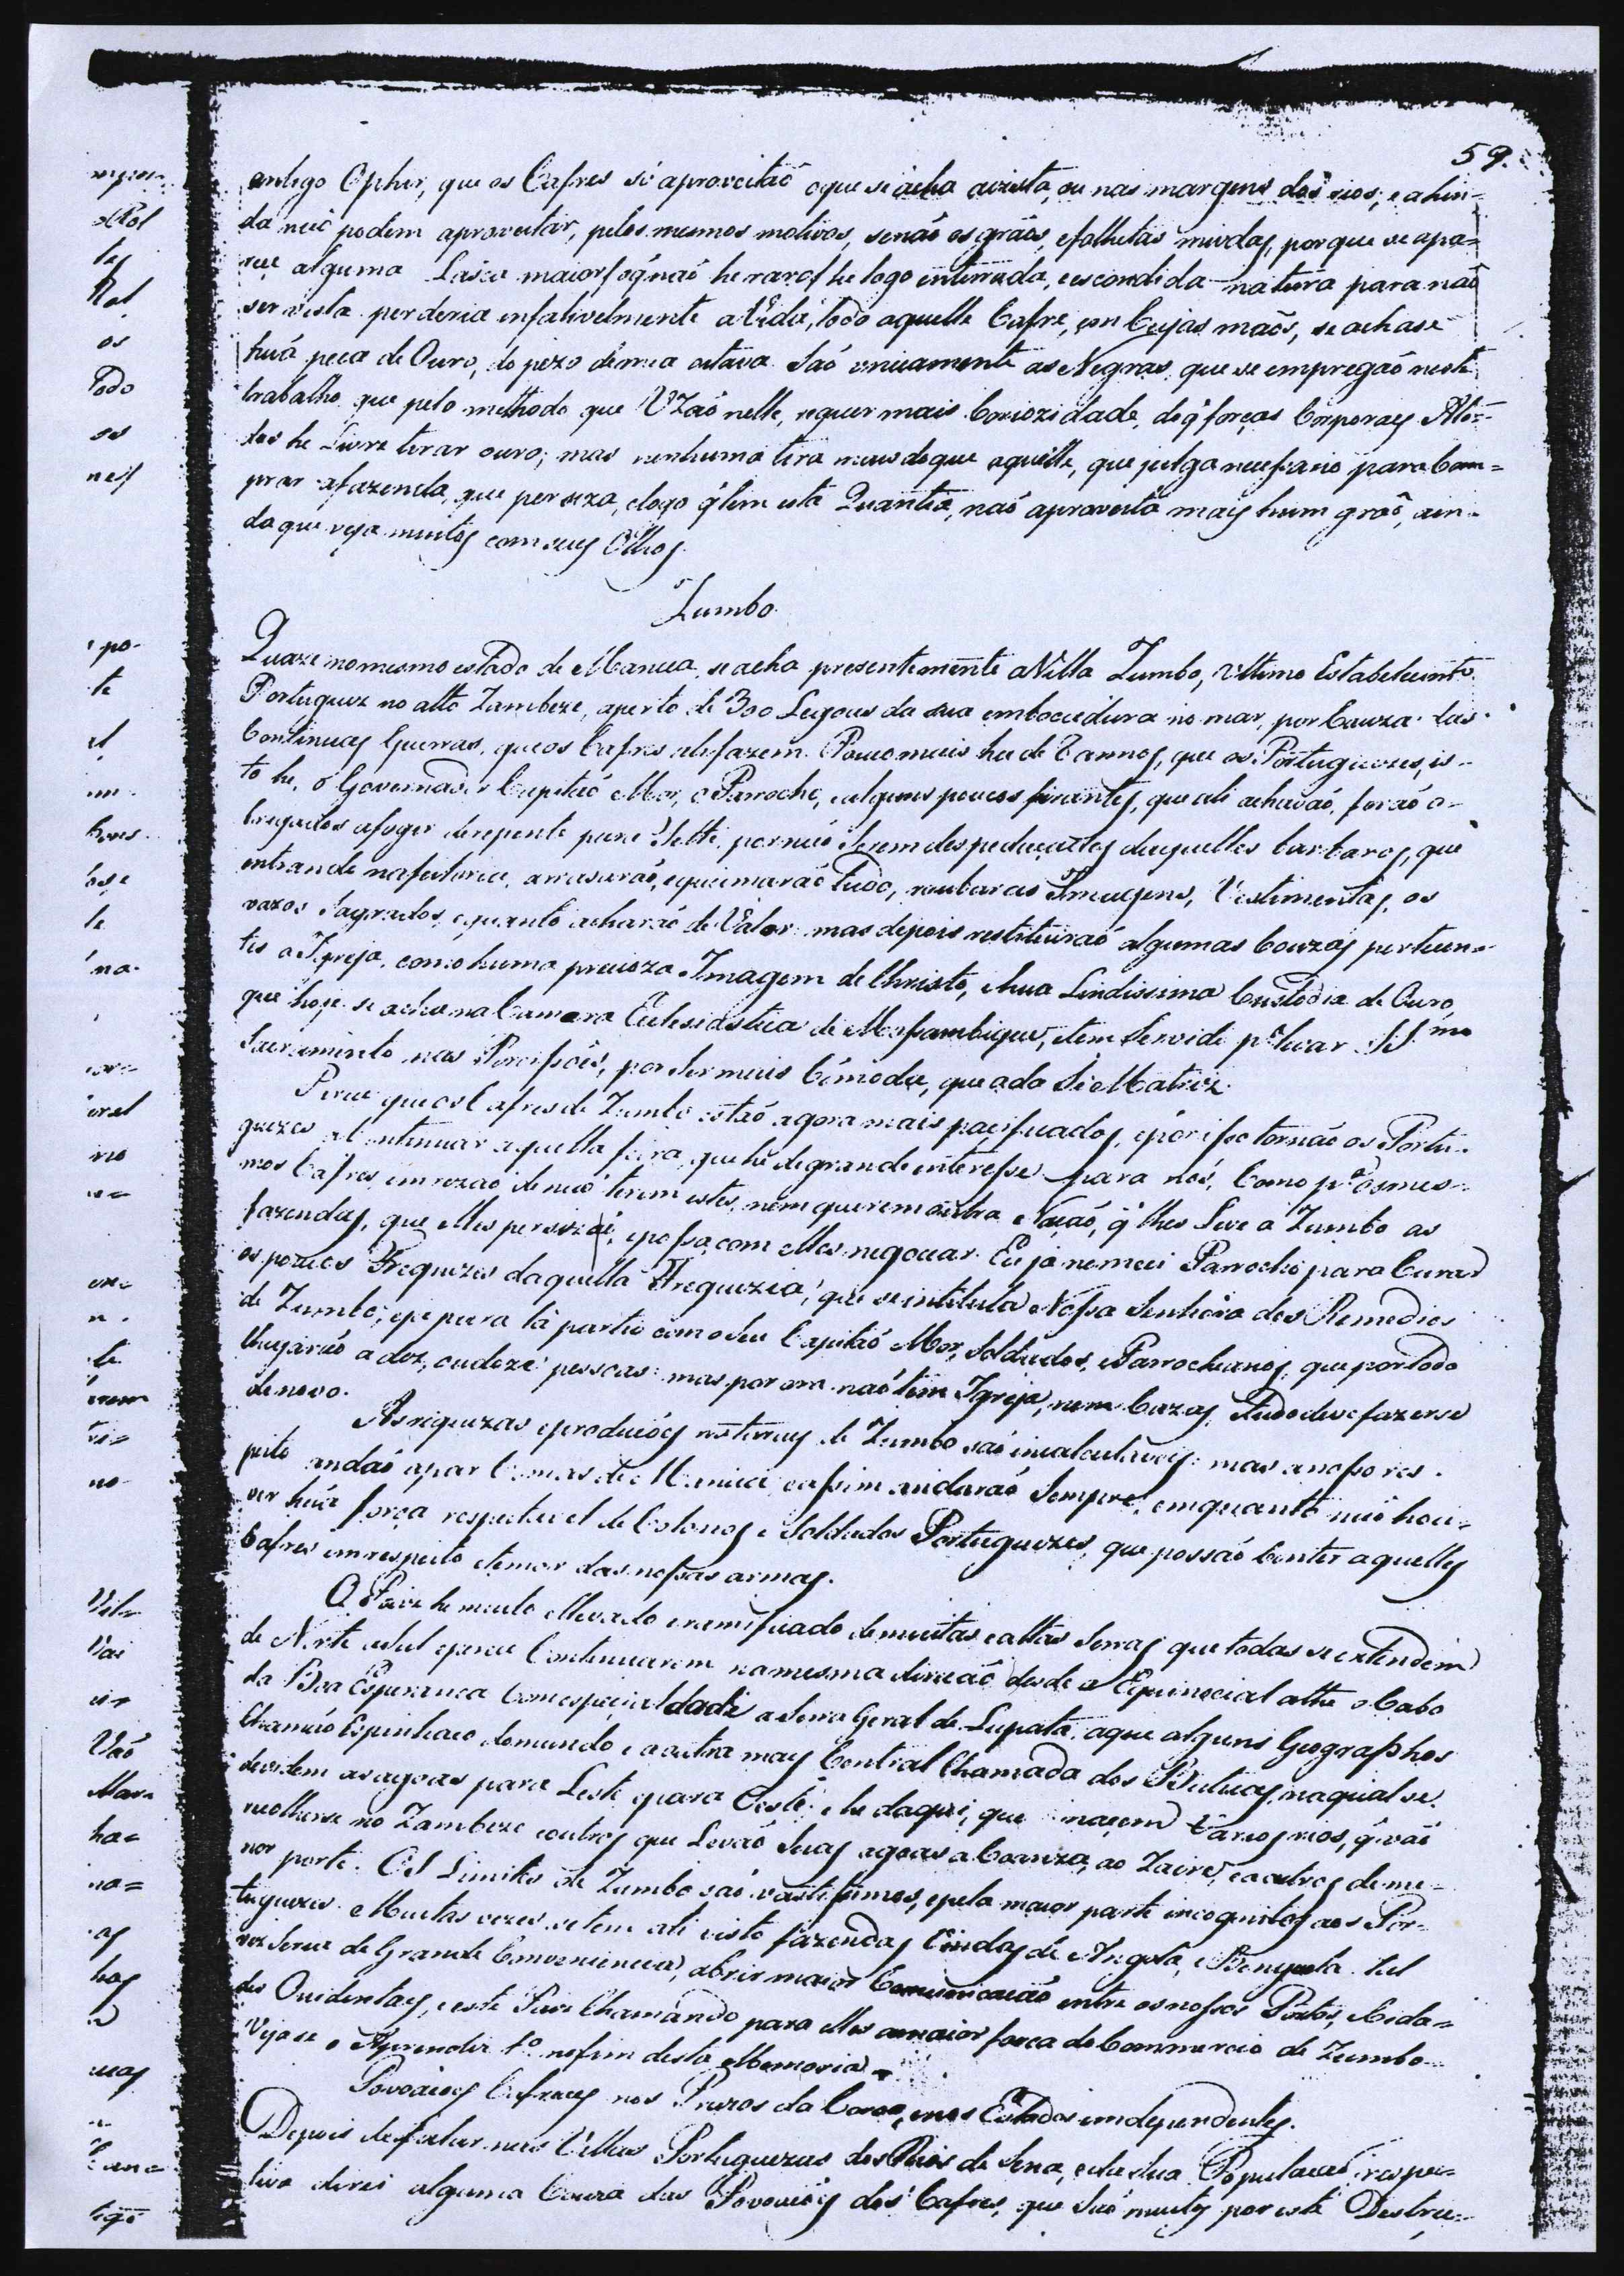 59.
antigo Ophir, que os Cafres só aproveitaõ o que se acha avista, ou nas margens dos rios; e ahin-
da naõ podem aproveitar, pelos mesmos motivos, senaõ os graõs, e folhetas miudas, porque se apa-
rece alguma Lasca maior, logo he enterrada, e escondida na terra para naõ
ser vista. perderia infalivelmente a Vida, todo aquelle Cafre, em Cujas maõs, se achase
huã peca de Ouro, do pezo de mea oitava. Saõ unicamente as Negras, que se empregaõ neste
trabalho, que pelo methodo que Uzaõ nelle, requer mais Coriozidade, do q̃ forças Corporaes. A to-
das he Livre tirar ouro; mas nenhuma tira mais do que aquelle, que julga necessario para Com-
prar a fazenda, que perciza, e logo q̃ tem esta Quantia, naõ aproveita mais hum graõ, ain-
da que veja muitos com seus Olhos.
Zumbo
Quaze no mesmo estado de Manica, se acha presentemente a Villa Zumbo, Ultimo Estabelecimto.
Portuguez no alto Zambeze, aperto de 300 Legoas da sua embocadura no mar, por Cauza das
Continuas Guerras, que os Cafres ali fazem. Pouco mais ha de 2 annos, que os Portuguezes, is-
to he, o Governador Capitaõ Mor, o Parrocho, e alguns poucos firantes, que ali achavaõ, foraõ o-
brigados afogir derepente para Tette, por naõ Serem despedaçados daquelles barbaros, que
entrando na feitoria, arrasaraõ, e queimaraõ tudo, roubaraõ Imagens, Vestimentas, os
vazos Sagrados, e quanto acharaõ de Valor: mas depois restituiraõ algumas Couzas pertencen-
tes a Igreja, como huma precioza Imagem de Christo, e hua Lindissima Custodia de Ouro,
que hoje se acha na Camara Ecclesiastica de Mossambique, e tem Servido pa. levar o SSmo
Sacramento nas Procissois, por Ser mais Cómoda, que a da Sé Matriz.
Parece que os Cafres de Zumbo estaõ agora mais pacificados, e por isso tornaõ os Portu-
guezes a Continuar aquella feira, que he de grande interesse para nós, Como pa. os mes-
mos Cafres, em rezaõ de naõ terem estes, nem quererem outra Naçaõ, q̃ lhes Leve a Zumbo as
fazendas, que elles persizaõ, e possa com elles negociar. Eu ja nomeei Parrocho para Curar
os poucos Freguezes daquella Freguezia, que se intitula Nossa Senhora dos Remedios
de Zumbo; e ja para lá partio com o Seu Capitaõ Mor, Soldados, e Parrochianos, que por todo
chegaraõ a dez, ou doze pessoas: mas por ora naõ tem Igreja, nem Cazas. Tudo deve fazerse
de novo.
As riquezas e producoẽs naturaes de Zumbo saõ incalculaveis: mas a nosso res-
peito andaõ a par Com as de Manica; e assim andaraõ Sempre, emquanto naõ hou-
ver huã força respectavel de Colonos e Soldados Portuguezes, que possaõ Conter aquelles
Cafres em respeito e temor das nossas armas.
O Paiz he muito ellevado e ramificado de muitas e altas Serras que todas se extendem
de Norte a Sul e parece Continuarem na mesma direcaõ desde a Equinocial athe o Cabo
da Boa Esperança Com especialidade a Serra Geral de Lupata, a que alguns Geographos
Chamaõ Espinhaco do mundo e a outra mais Central Chamada dos Butuas, na qual se
dividem as agoas para Leste e para Oeste; e he daqui, que nacem Varios rios, q̃ vaõ
recolherse no Zambeze e outros que Levaõ Suas agoas a Coanza, ao Zaire, e a outros de me-
nor porte. Os Limites de Zumbo saõ vastissimos, e pela maior parte incognitos aos Por-
tuguezes. Muitas vezes se tem ali visto fazendas Vindas de Angola, e Benguela. Tal
vez Seria de Grande Conveniencia, abrir maior Comunicacaõ entre os nossos Portos, e Cida-
des Ocidentaes, e este Paiz Chamando para elles a maior forca do Commercio de Zumbo.
Vejase o Apendix 1º no fim desta Memoria.
Povoacoẽs Cafreaes nos Prazos da Coroa, e nos Estados independentes.
Depois de falar nas Villas Portuguezas dos Rios de Sena, e da Sua Populacaõ respec-
tiva direi alguma Couza das Povoacoẽs dos Cafres, que Saõ muitas por este Destric-